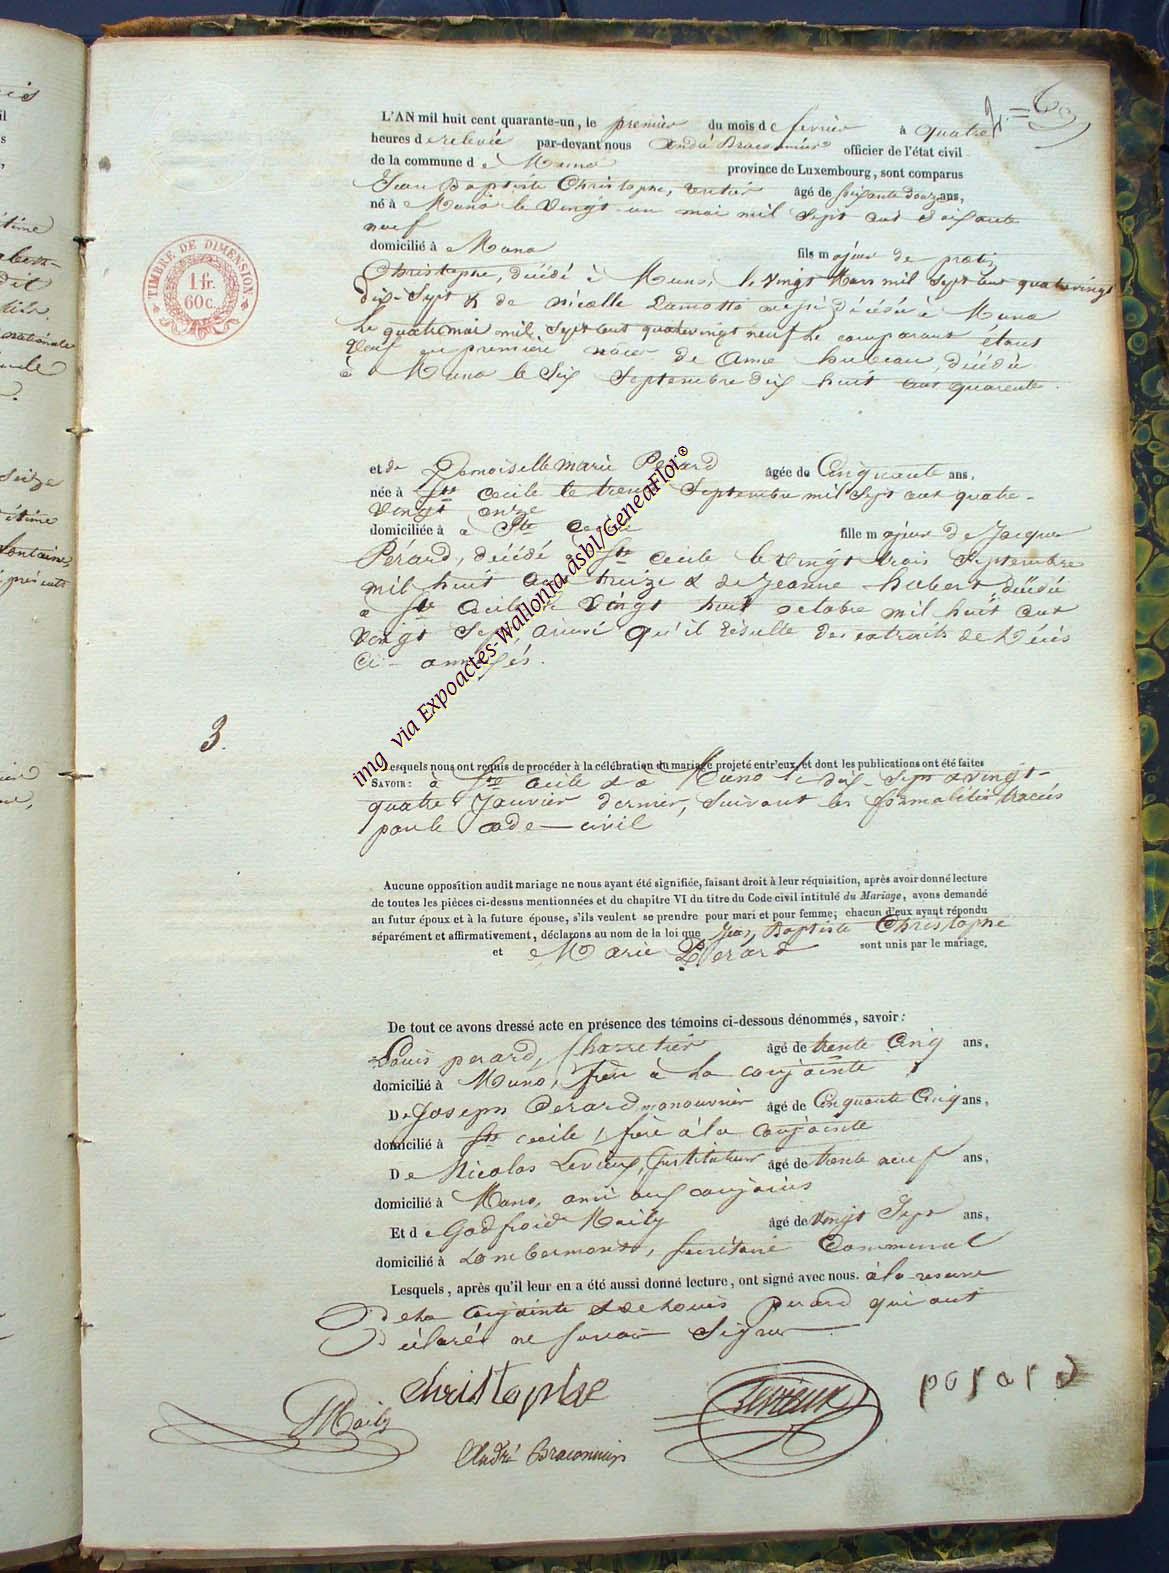 L'AN mil huit cent quarante-un, le premier du mois de fevrier à quatre
heures de relevée par-devant nous André Braconnier officier de l'état civil
de la commune de Muno province de Luxembourg, sont comparus
Jean Baptiste Christophe, rentier âgé de soixante douze ans,
né à Muno le vingt un mai mil sept cent soixante
neuf
domicilié à Muno fils majeur de
Christophe, décédé à Muno, le vingt mars mil sept cent quatrevingt
dix-sept & de nicolle Lamotte aussi décédée à Muno
le quatre mai mil sept cent quatrevingt neuf le comparant étant
veuf en première noces de Anne hubeau, décédée
à Muno le six septembre dix huit cent quarante.
TIMBRE DE DIMENSION
1 fr.
60 c.
et de Demoiselle marie Perard âgée de Cinquante ans,
née à Ste cecile le trente septembre mil sept cent quatre-
vingt onze
domiciliée à Ste cecile fille majeur de Jacque
Pérard, décédé à Ste cecile le vingt trois septembre
mil huit cent treize & de Jeanne habert décédée
à Ste Cecile le vingt huit octobre mil huit cent
vingt sept ainsi qu'il résulte des extraits de décès
ci-annexés.
3.
Lesquels nous ont requis de procéder à la célébration du mariage projeté entr'eux, et dont les publications ont été faites
SAVOIR: à Ste cecile & à Muno le dix-sept & vingt-
quatre Janvier dernier, suivant les formalités tracées
par le code civil
Aucune opposition audit mariage ne nous ayant été signifiée, faisant droit à leur réquisition, après avoir donné lecture
de toutes les pièces ci-dessus mentionnées et du chapitre VI du titre du Code civil intitulé du Mariage, avons demandé
au futur époux et à la future épouse, s'ils veulent se prendre pour mari et pour femme; chacun d'eux ayant répondu
séparément et affirmativement, déclarons au nom de la loi que Jean Baptiste Christophe
et Marie Perard sont unis par le mariage.
De tout ce avons dressé acte en présence des témoins ci-dessous dénommés, savoir:
Louis perard, Charretier âgé de trente Cinq ans,
domicilié à Muno, frère à la conjointe
De Joseph Perard manouvrier âgé de Cinquante Cinq ans,
domicilié à Ste cecile, frère à la conjointe
De Nicolas Levieux, Instituteur âgé de trente neuf ans,
domicilié à Muno, ami aux conjoins
Et de Godfroid Maily âgé de vingt Sept ans,
domicilié à Lambermont, secrétaire Communal
Lesquels, après qu'il leur en a été aussi donné lecture, ont signé avec nous. à la reserve
de la conjointe & de Louis perard qui ont
déclarés ne savoir signer
christophe Levieux perard
Maily
André Braconnier
img via Expoactes-Wallonia.asbl/GeneaFlor©